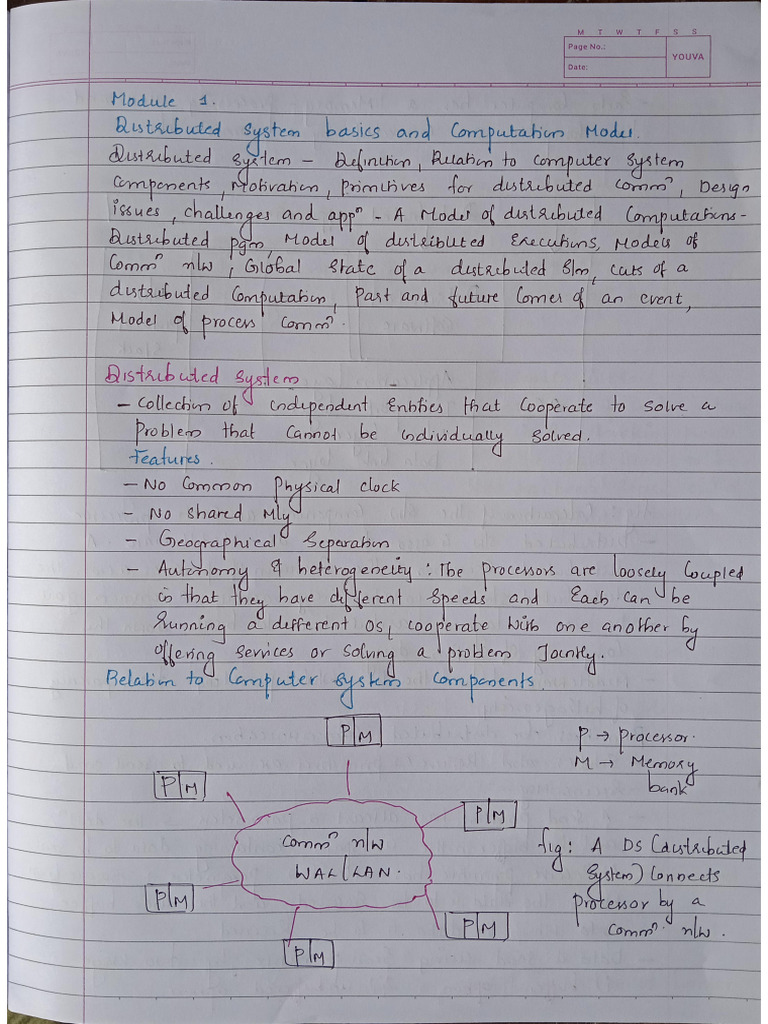 M T W T F S S
Page No.:
Date:
YOUVA
Module 1.
Distributed System basics and Computation Model.
Distributed System – Definition, Relation to computer system
Components, Motivation, primitives for distributed commⁿ, Design
issues, challenges and appⁿ - A Model of distributed Computations-
Distributed pgm, Model of distributed Executions, Models of
Commⁿ n/w, Global State of a distributed S/m, cuts of a
distributed Computation, Past and future Cones of an event,
Model of process Commⁿ.
Distributed System
- Collection of independent Entities that Cooperate to solve a
problem that cannot be individually solved.
Features.
- No Common Physical clock
- No Shared M/y
- Geographical Separation
- Autonomy & heterogeneity : The processors are loosely Coupled
in that they have different speeds and Each can be
running a different OS, cooperate with one another by
offering services or solving a problem Jointly.
Relation to Computer System Components.
P M
P → processor.
M → Memory
bank
P M
P M
Commⁿ n/w
WAL/LAN.
fig: A DS (distributed
System) Connects
processor by a
commⁿ n/w.
P M
P M
P M